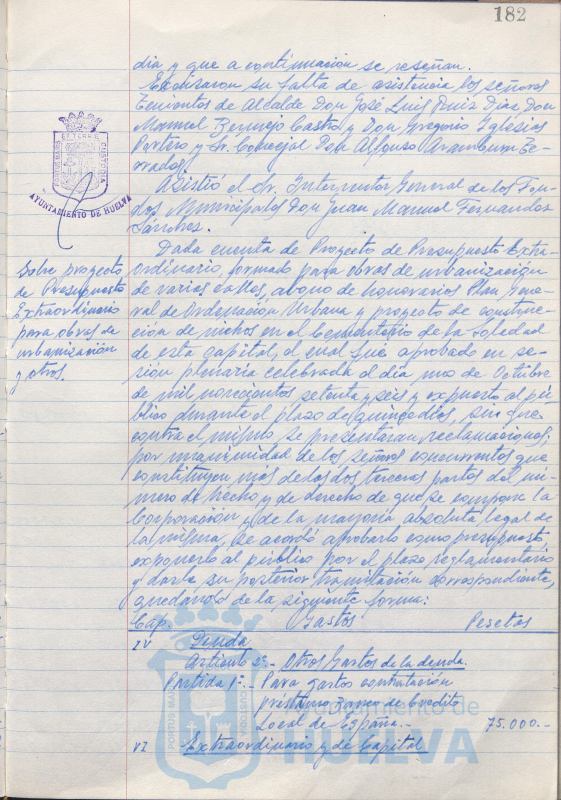 182
dia y que a continuación se reseñan.
Excusaron su falta de asistencia los señores
Tenientes de Alcalde Don José Luis Ruiz Díaz Don
Manuel Bermejo Castro y Don Gregorio Iglesias
Portero y Sr. Concejal Don Alfonso Aramburu Te-
rrades.
Asistió el Sr. Interventor General de los Fon-
dos Municipales Don Juan Manuel Fernandez
Sanchez.
PORTUS MARIS ET TERRE CUSTODIA
AYUNTAMIENTO DE HUELVA
Sobre proyecto
de Presupuesto
Extraordinario
para obras de
urbanización
y otros.
Dada cuenta de Proyecto de Presupuesto Extra-
ordinario, formado para obras de urbanización
de varias calles, abono de honorarios Plan Gene-
ral de Ordenación Urbana y proyecto de construc-
ción de nichos en el Cementerio de la Soledad
de esta capital, el cual fue aprobado en se-
sión plenaria celebrada el día uno de Octubre
de mil novecientos setenta y seis y expuesto al pú-
blico durante el plazo de quince días, sin que
contra el mismo se presentaran reclamaciones;
por unanimidad de los señores concurrentes que
constituyen más de las dos terceras partes del nú-
mero de hecho y de derecho de que se compone la
Corporación y de la mayoría absoluta legal de
la misma, se acordó aprobarlo como presupuesto
exponerlo al público por el plazo reglamentario
y darle su posterior tramitación correspondiente,
quedando de la siguiente forma:
Cap. Gastos Pesetas
IV Deuda
Artículo 2º.- Otros Gastos de la deuda.
Partida 1ª.- Para gastos contratación
préstamo Banco de Crédito
Local de España.- 75.000.-
VI Extraordinario y de Capital
Ayuntamiento de
HUELVA